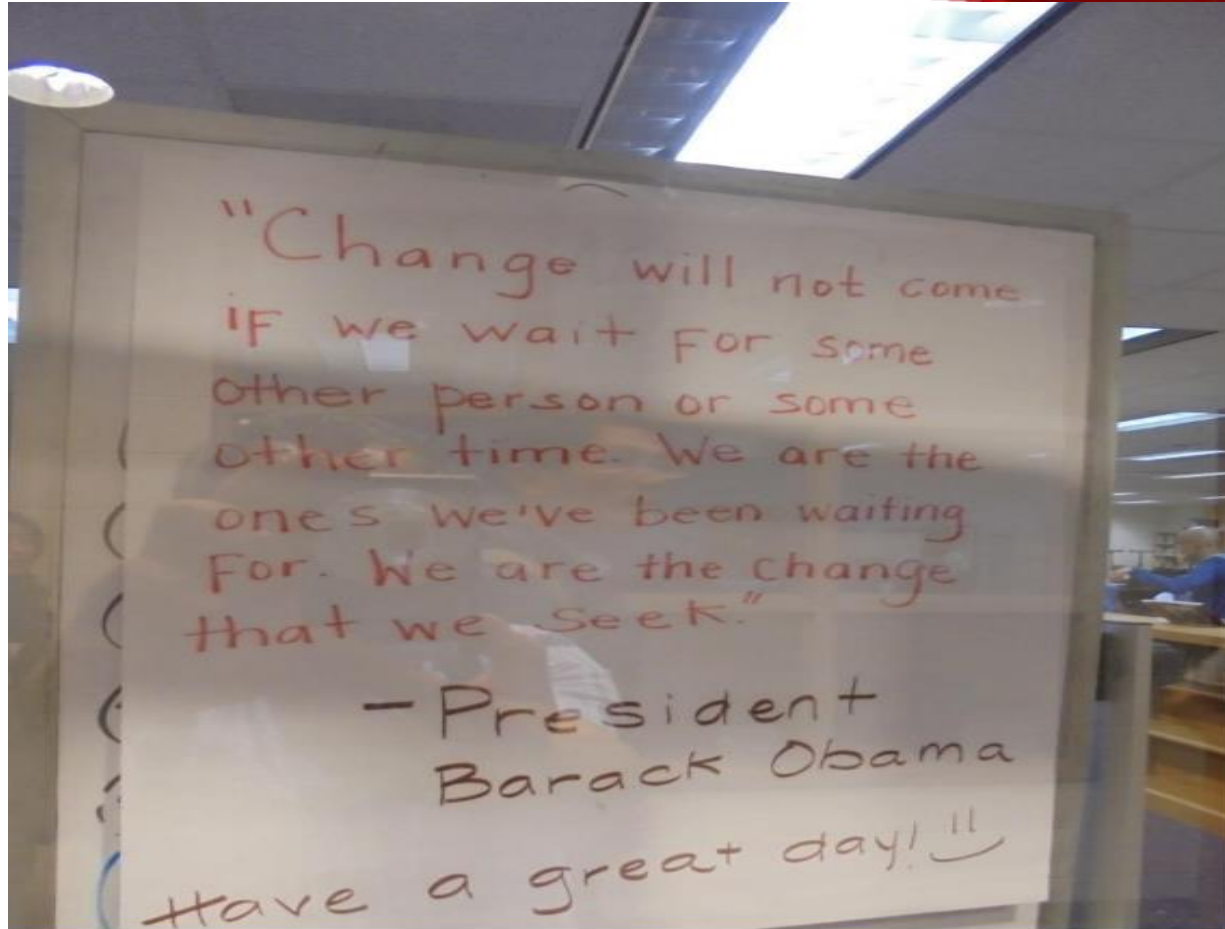 "Change will not come
if we wait for some
other person or some
other time. We are the
ones we've been waiting
for. We are the change
that we seek."
- President
Barack Obama
Have a great day!